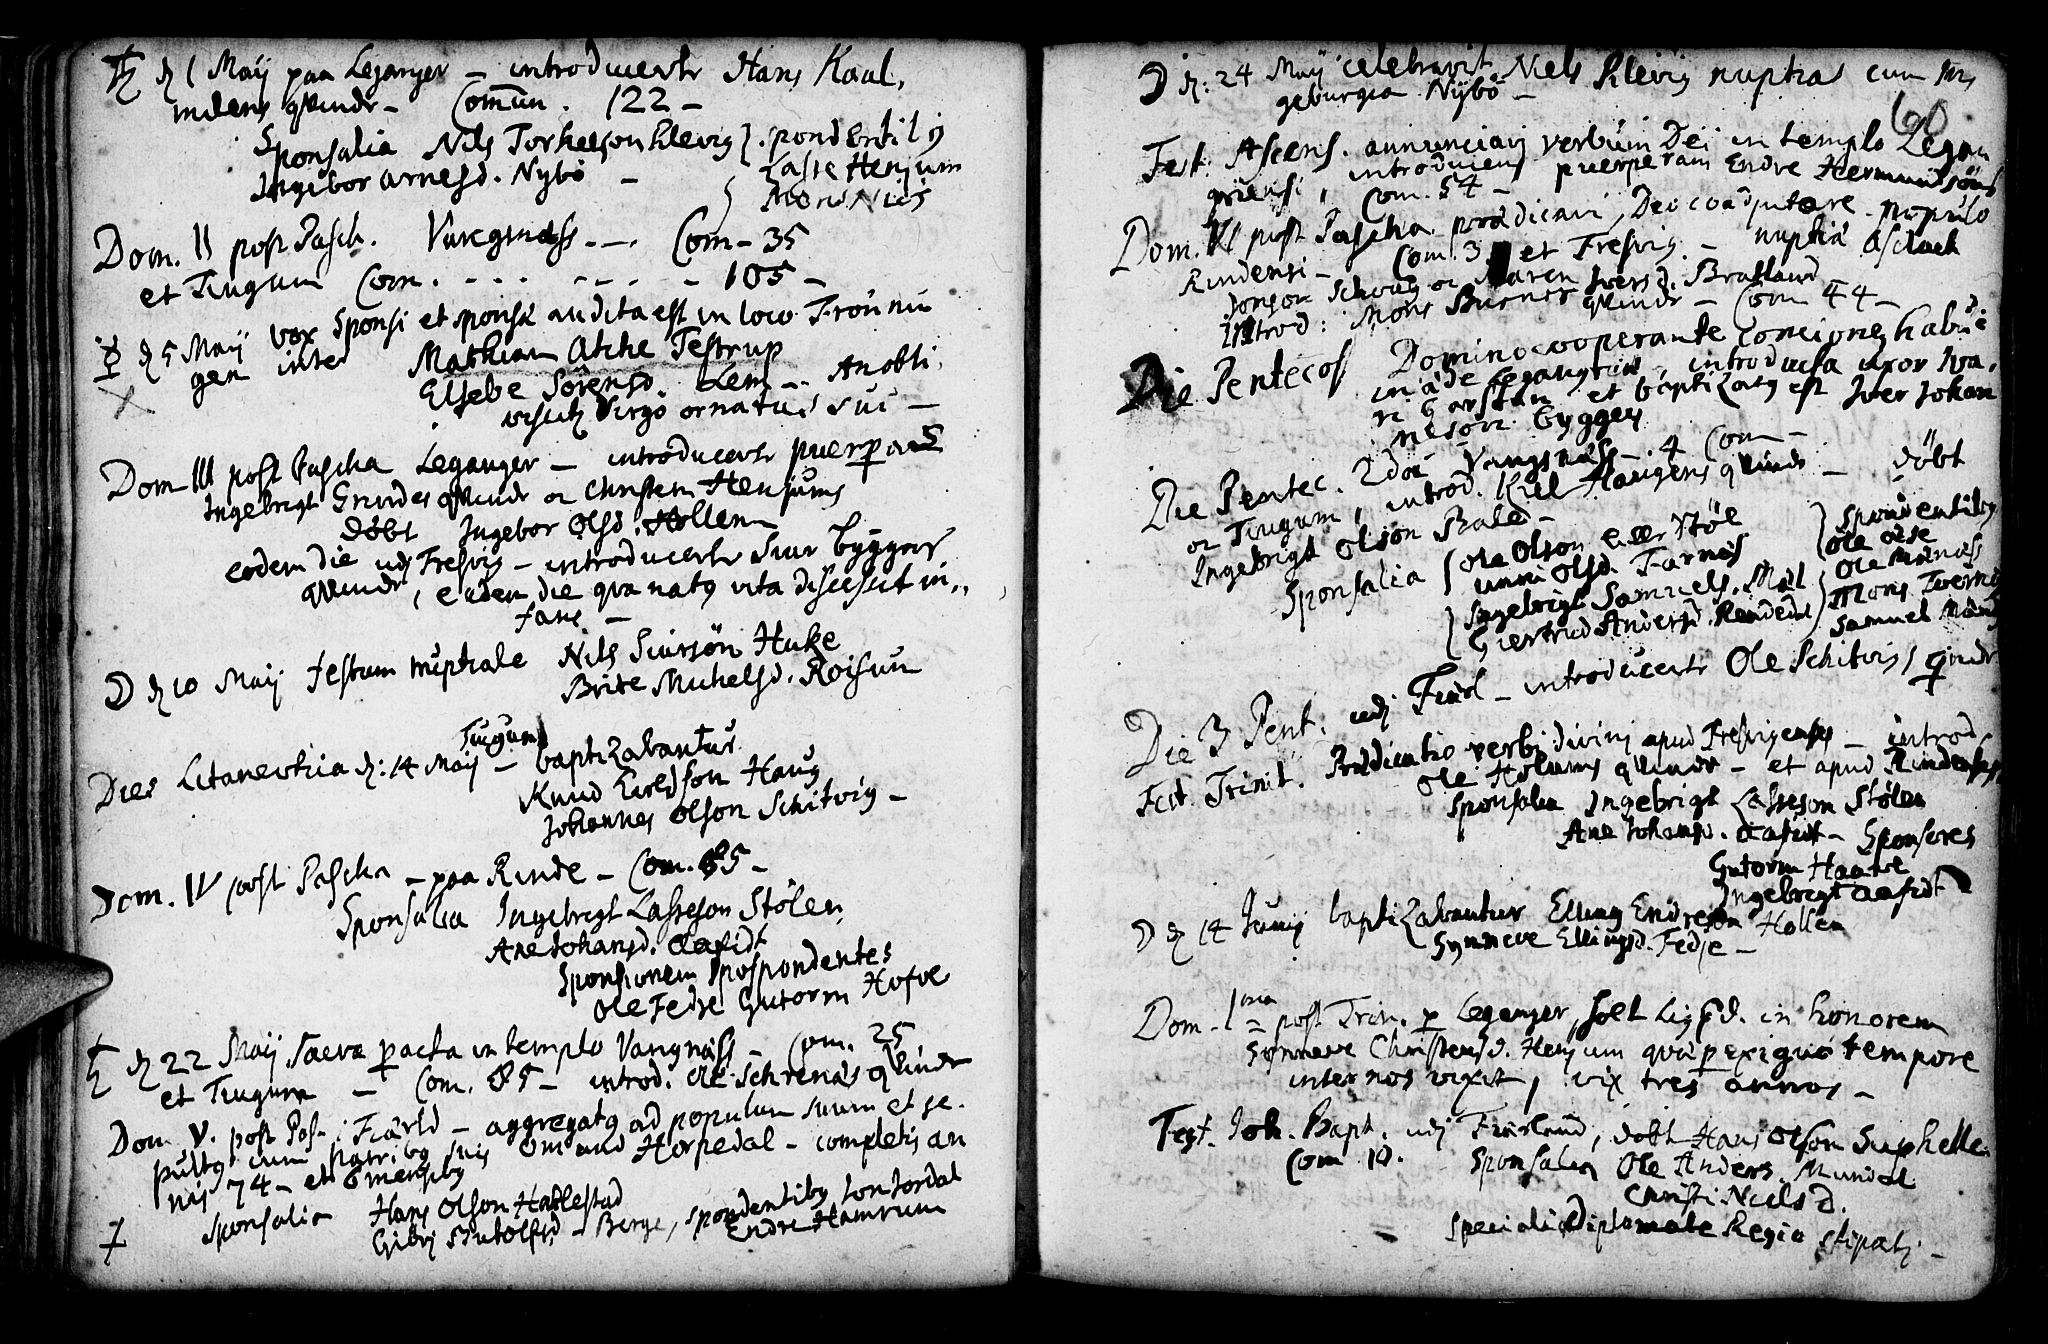 ♄ d 1 Maij paa Leganger – introducerte Hans Kaal,
indens qvinde – Com̄un. 122 –
Sponsalia Nils Torkelson Klevig }. spondentibꝰ
Ingebor Arnesd. Nybö – Lasse Henjum
Mons Nils
Dom. II post Pasch. Vangsness – . Com – 35
et Tiugum Com. - - - - - - - 105 –
☿ d 5 Maij vox Sponsi et sponsæ audita est in loco Frönnin
gen inter Mathiam Atche Testrup
Elsebe Sörensd. Lem – . Anobli
Virgo ornatus sui –
Dom III post Pascha Leganger – introducerte puerperas
Ingebrigt Grindes qvinde oc Christen Henjums
döbt Ingebor Olsd. Hollen
eodem die udj Fresvig – introducerte Siur byggers
qvinde, eadem die qva natꝰ vita discessit in..
fans –
☽ d 10 Maij festum nuptiale Nils Siursön Huke
Brite Michelsd. Roisum
Tiugum
Dies Litaneutica d: 14 Maij – baptizabantur
Knud Eiredson Haug
Johannes Olson Schitvig –
Dom. IV post Pascha – paa Rinde – Com. 85 –
Sponsalia Ingebrigt Lasseson Stölen
Ane Johansd. Aafidt
Sponsionem spospondentes
Ole Fedje Gutorm Hofve
♄ d 22 Maij Sacra peracta in templo Vangnäss – Com. 25
et Tiugum – Com. 85 – introd. Ole Schrenäs qvinde
Dom V. post Pas. i Fiärld – aggregatꝰ ad populum suum et se.
pultꝰ cum patribꝰ suis Omund Horpedal – completis an
nis 74 – et 6 mensibꝰ
Sponsalia Hans Olson Hatlestad
Botolfsd – Berge, spondentibꝰ Jon Jordal
Endre Hamrum
☽ d: 24 Maij celebravit Niels Klevig nuptias cum In
geburgia Nybö –
60
Fest. Ascens. annunciavi verbum Dei in templo Legan
griensi, introducens puerperam Endre Hermundsöns
Com. 54 –
Dom. VI post Pascha prædicavi, Deo coadjutore populo
Rindensi – Com. 3 et Fresvig – nuptiæ Aslach
Jonson Schoug oc Maren Iversd. Bratland
Introd: Mons Burners qvinde – Com 44 –
Die Pentecos Domino cooperante Concionem habui
in æde Legangriæ, introducta uxor Iva.
n et baptizatꝰ est Iver Johan
neson byggeri
Die Pentec. 2doi Vangsnäss – 4 Com –
oc Tiugum, introd. Kiel Haugens qvinde – döbt
Ingebrigt Olson Bale –
Sponsalia { Ola Olson Eller Stöl } spondentibꝰ
Unni Olsd. Farnäs Ole Olse
Ole Månæss
} Ingebrigt Samuels. Mäl } Mons Tverrig
Giertrud Andersd. Samuel
Die 3 Pent. udj Fiärl – introducerte Ole Schitvigs qvinde
Fest. Trinit. Prædicatio verbi divini apud Fresvigenses – introd
Ole Holums qvinde – et apud Rindenses
Sponsalia Ingebrigt Lasseson Stölen
Ane Johansd. Aafidt – Sponsores
Gutorm Haave
Ingebrigt Aafidt
☽ d 14 Junij baptizabantur Elling Endreson Hollen
Synneve Ellingsd. Fedje –
Dom. 1ma post Trin. p Leganger, holt Ligpd. in honorem
Synneve Christensd. Henjum qvæ perexiguo tempore
inter nos vixit, vix tres annos –
Fest. Joh. Bapt. udj Fiärland, döbt Hans Olson Suphelle
Com 10. Sponsalia Ole Anders. Mundal
Christi Nielsd.
speciali Diplomate Regio stipati –